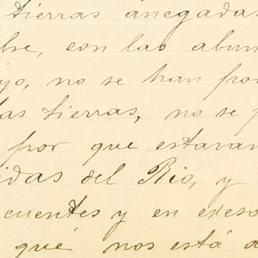 tierras anegadas
bre, con las abun
ijo, no se han po
las tierras, no se p
por que estavan
idas del Rio, y
cuentes y en exeso
qué nos está a